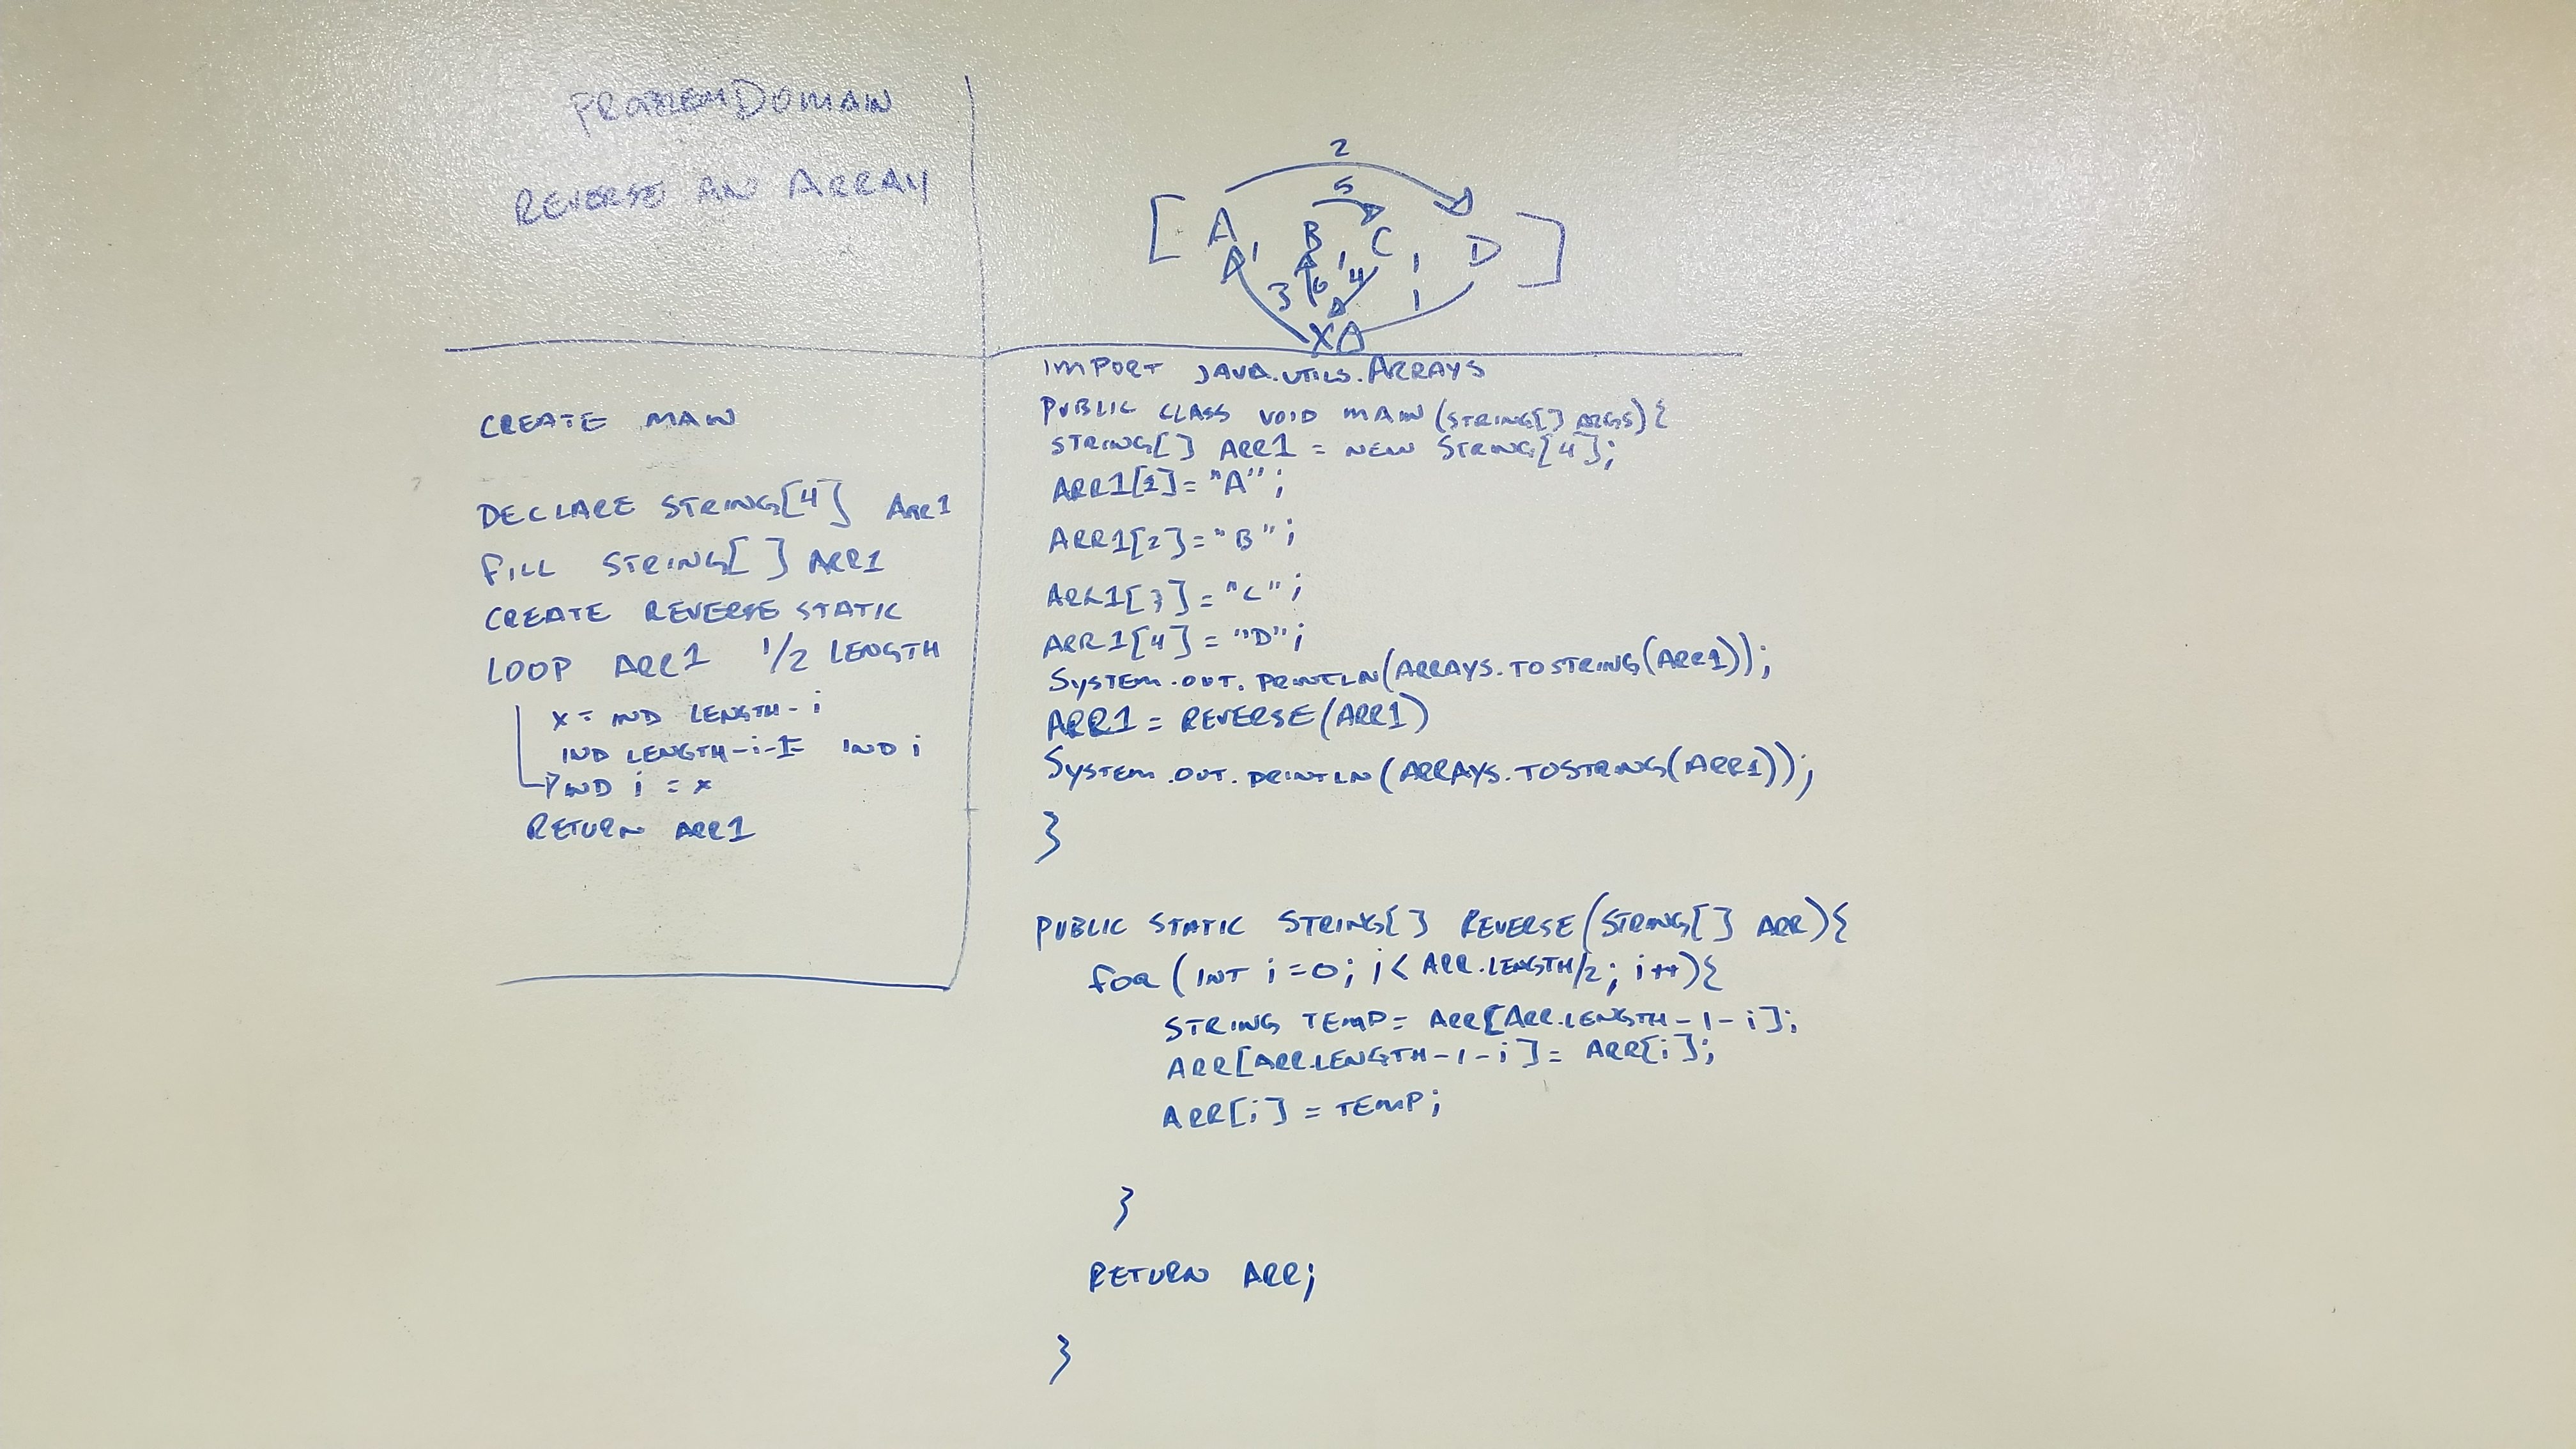 PROBLEM DOMAIN
REVERSE AN ARRAY
2
5
[ A, B, C, D ]
3 6 4 1
X
CREATE MAIN
DECLARE STRING[4] ARR1
FILL STRING[ ] ARR1
CREATE REVERSE STATIC
LOOP ARR1 1/2 LENGTH
X = IND LENGTH - i
IND LENGTH-i-1= IND i
IND i = X
RETURN ARR1
IMPORT JAVA.UTILS.ARRAYS
PUBLIC CLASS VOID MAIN (STRING[] ARGS){
STRING[] ARR1 = NEW STRING[4];
ARR1[1]= "A";
ARR1[2]= "B";
ARR1[3] = "C";
ARR1[4] = "D";
SYSTEM.OUT.PRINTLN(ARRAYS.TOSTRING(ARR1));
ARR1 = REVERSE(ARR1)
SYSTEM.OUT.PRINTLN(ARRAYS.TOSTRING(ARR1));
}
PUBLIC STATIC STRING[] REVERSE(STRING[] ARR){
FOR (INT i=0; i< ARR.LENGTH/2; i++){
STRING TEMP= ARR[ARR.LENGTH-1-i];
ARR[ARR.LENGTH-1-i]= ARR[i];
ARR[i] = TEMP;
}
RETURN ARR;
}